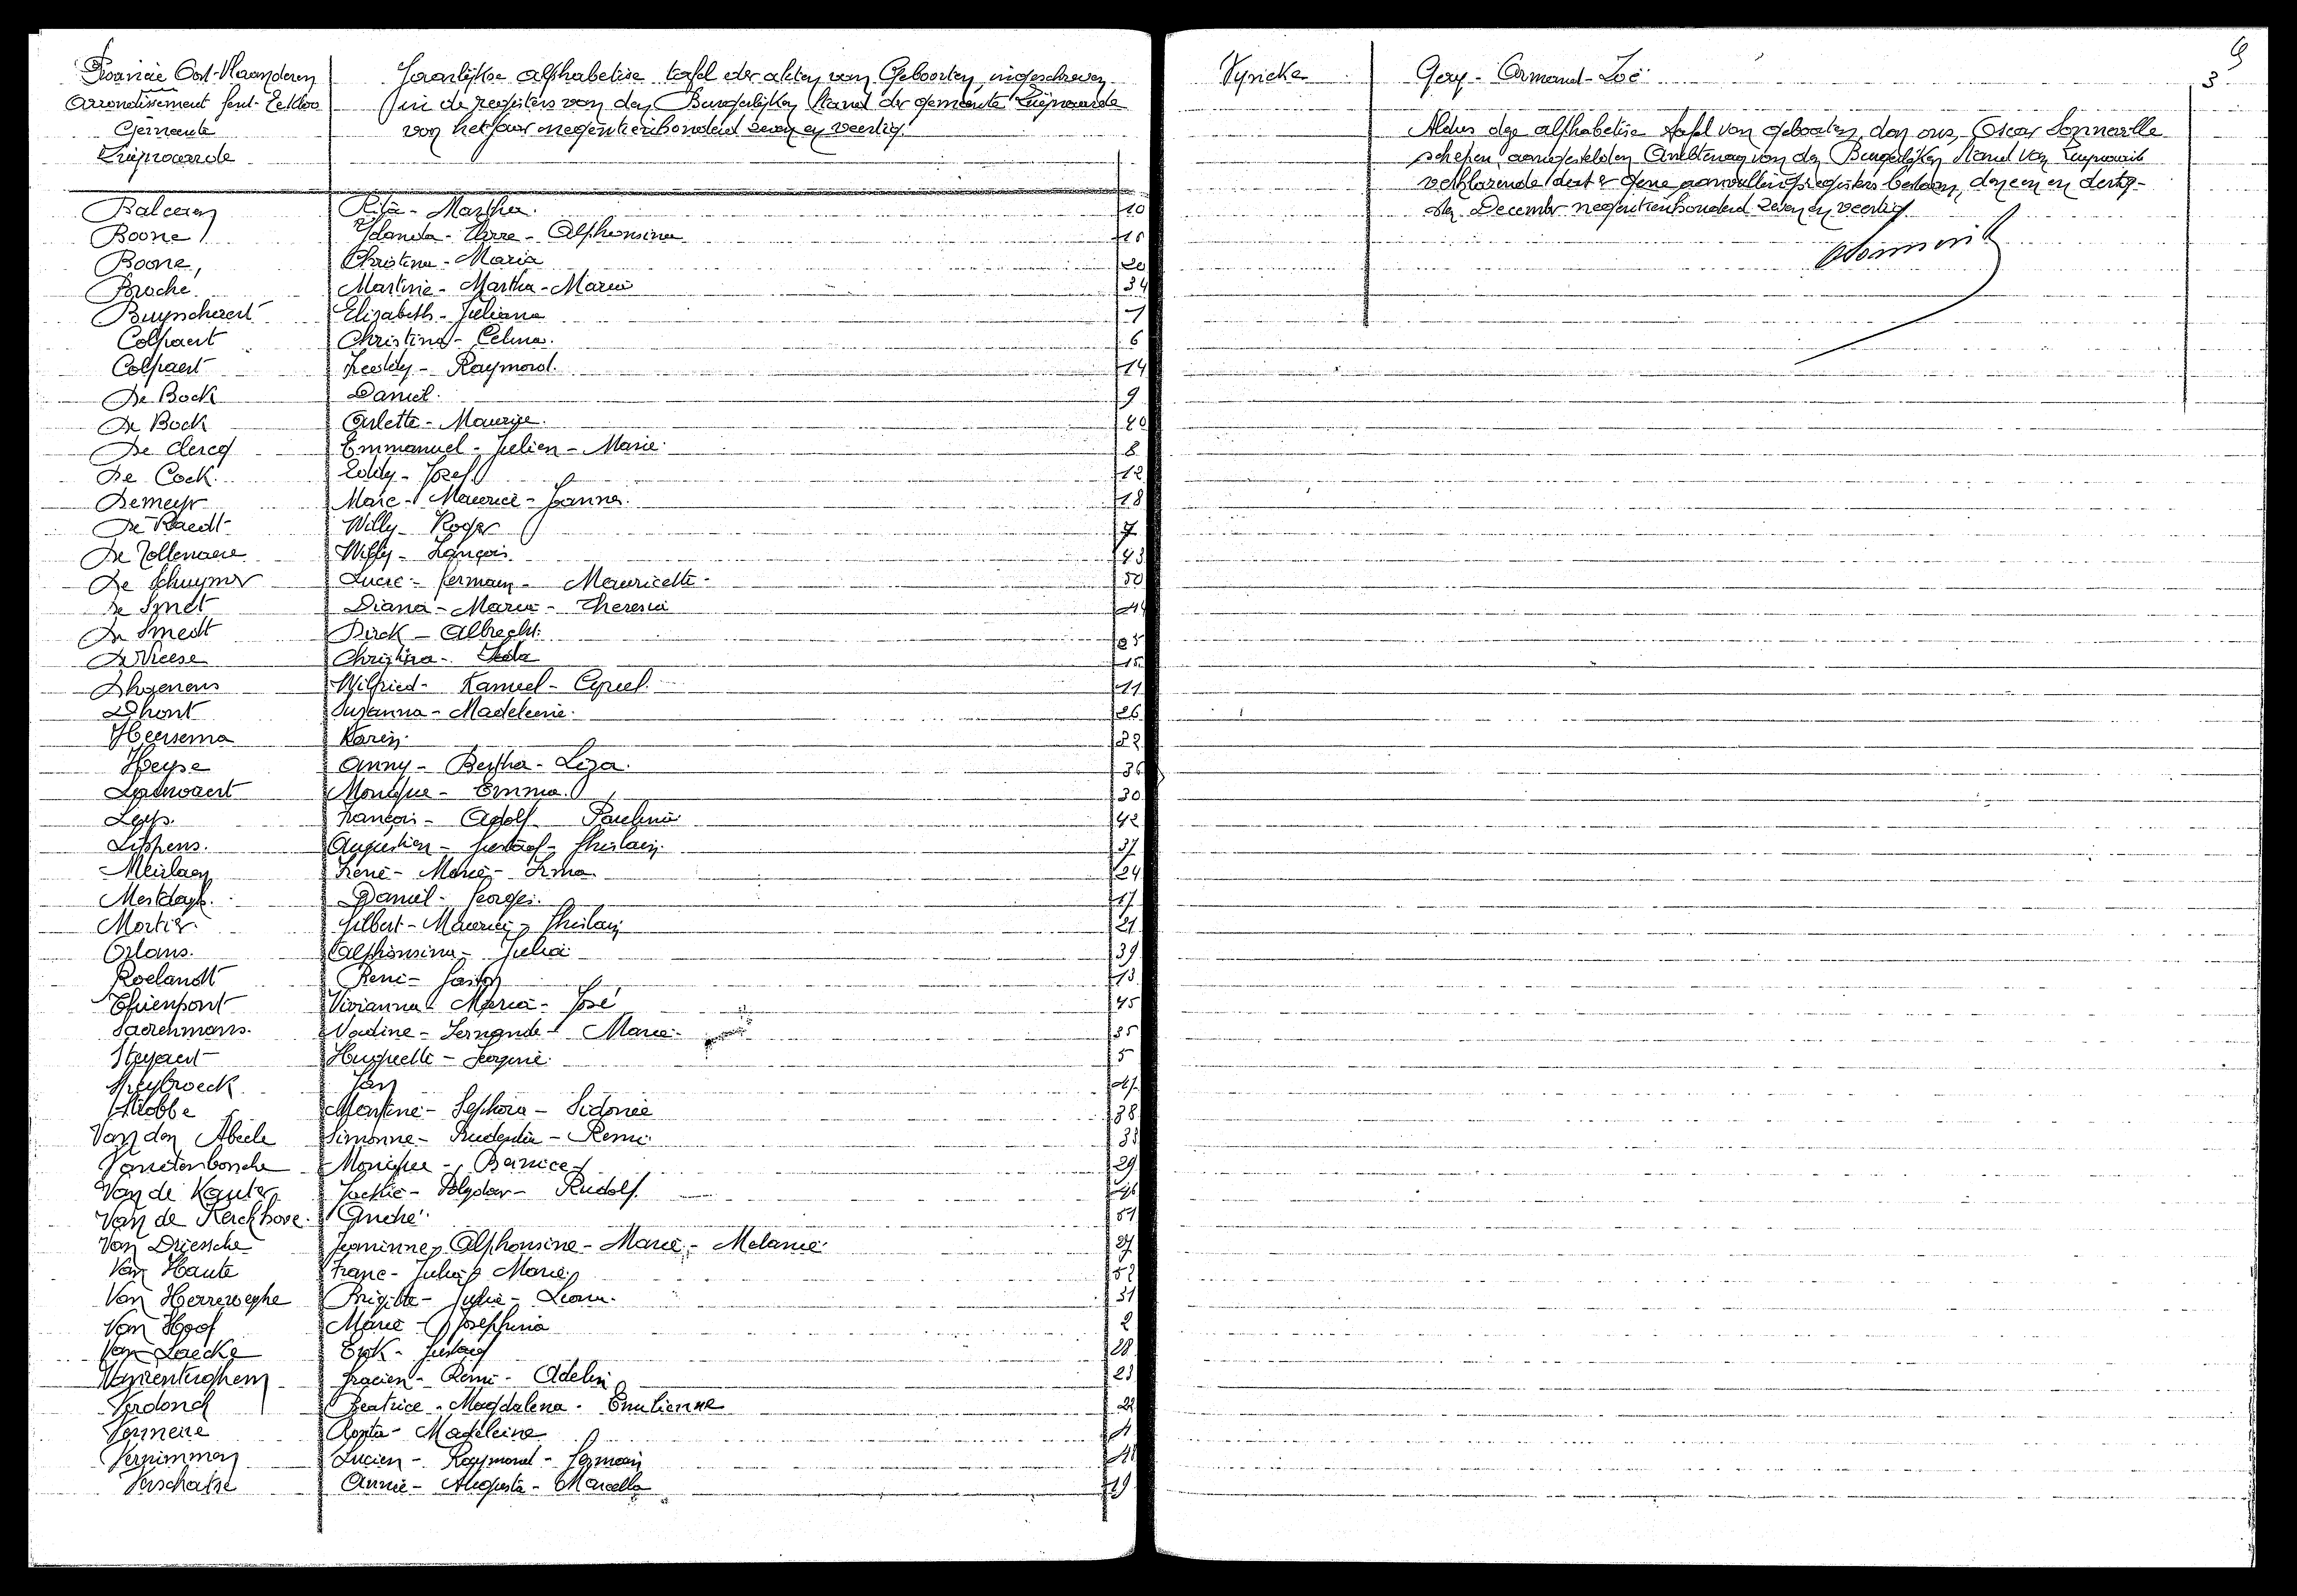 Provincie Oost-Vlaanderen
Arrondissement Gent-Eekloo
Gemeente
Zwijnaarde
Jaarlijkse alphabetise tafel der akten van Geboorten, ingeschreven
in de registers van den Burgerlijken Stand der gemeente Zwijnaarde
van het jaar negentienhonderd zeven en veertig.
Balcaen Rita - Martha. 10
Boone Yolanda - Alphonsina 16
Boone, Christina - Maria 20
Broché Martine - Martha - Maria 34
Buysschaert Elisabeth - Juliana 1
Colpaert Christina - Celina. 6
Colpaert Freddy - Raymond. 14
De Bock Daniel. 9
De Bock Arlette - Maurice. 40
De Clercq Emmanuel - Julien - Marie. 8
De Cock. Eddy - Jozef. 12
Demeyr Marc - Maurice - Joanna. 18
De Raedt Willy - Roger 7
De Tollenaere Willy - François. 43
De Schuymer Lucie - Germain - Mauricette. 50
De Smet Diana - Maria - Theresia 44
De Smedt Dirck - Albrecht. 25
De Vreese Christina - 15
Dhaenens Wilfried - Kamiel - Cyriel. 11
Dhont Suzanna - Madeleine. 26
Heersema Karin. 32
Heyse Anny - Bertha - Liza. 36
Monique - Emma. 30
Leys. François - Adolf - Paulina 42
Lippens. Augustien - Gustaaf - Ghislain. 37
Meirlaen Irené - Marie - Irma 24
Mestdagh. Daniel - Georges. 17
Mortier. Gilbert - Maurice - Ghislain 21
Orlans. Alphonsina - Julia 39
Roelandt René - Gaston 13
Thienpont Vivianna - Maria - José 45
Saerenmans. Nadine - Fernande - Marie. 35
Steyaert Huguette - Georgine. 5
Speybroeck Jan 47
Stobbe Martine - Sephora - Sidonie 38
Van den Abeele Simonne - Prudentia - Remi. 33
Vandenbossche Monique - Bernice 29
Van de Kauter Jackie - Polydoor - Rudolf. 46
Van de Kerckhove. André. 51
Van Driessche Jeaninne, Alphonsine - Marie - Melanie. 27
Van Haute Franc - Julia - Marie. 52
Van Herreweghe Brigitte - Julia - Leona. 31
Van Hoof Marie - Josephina 2
Van Laecke Erik - Gustaaf 28
Vanrenterghem Gracien - Remi - Adelin 23
Verdonck Beatrice - Magdalena - Emilienne 22
Vermeire Agnita - Madeleine 4
Vernimmen Lucien - Raymond - Germain 41
Verschatse Annie - Augusta - Marcella 19
Vyncke Gery - Armand - Zoë 3
Aldus deze alphabetise tafel van geboorten, door ons, Oscar Sonneville
schepen aangestelden Ambtenaar van den Burgerlijken Stand van Zwijnaarde
verklarende dat er geene aanvullingsregisters bestaan, den een en dertig-
sten December negentienhonderd zeven en veertig.